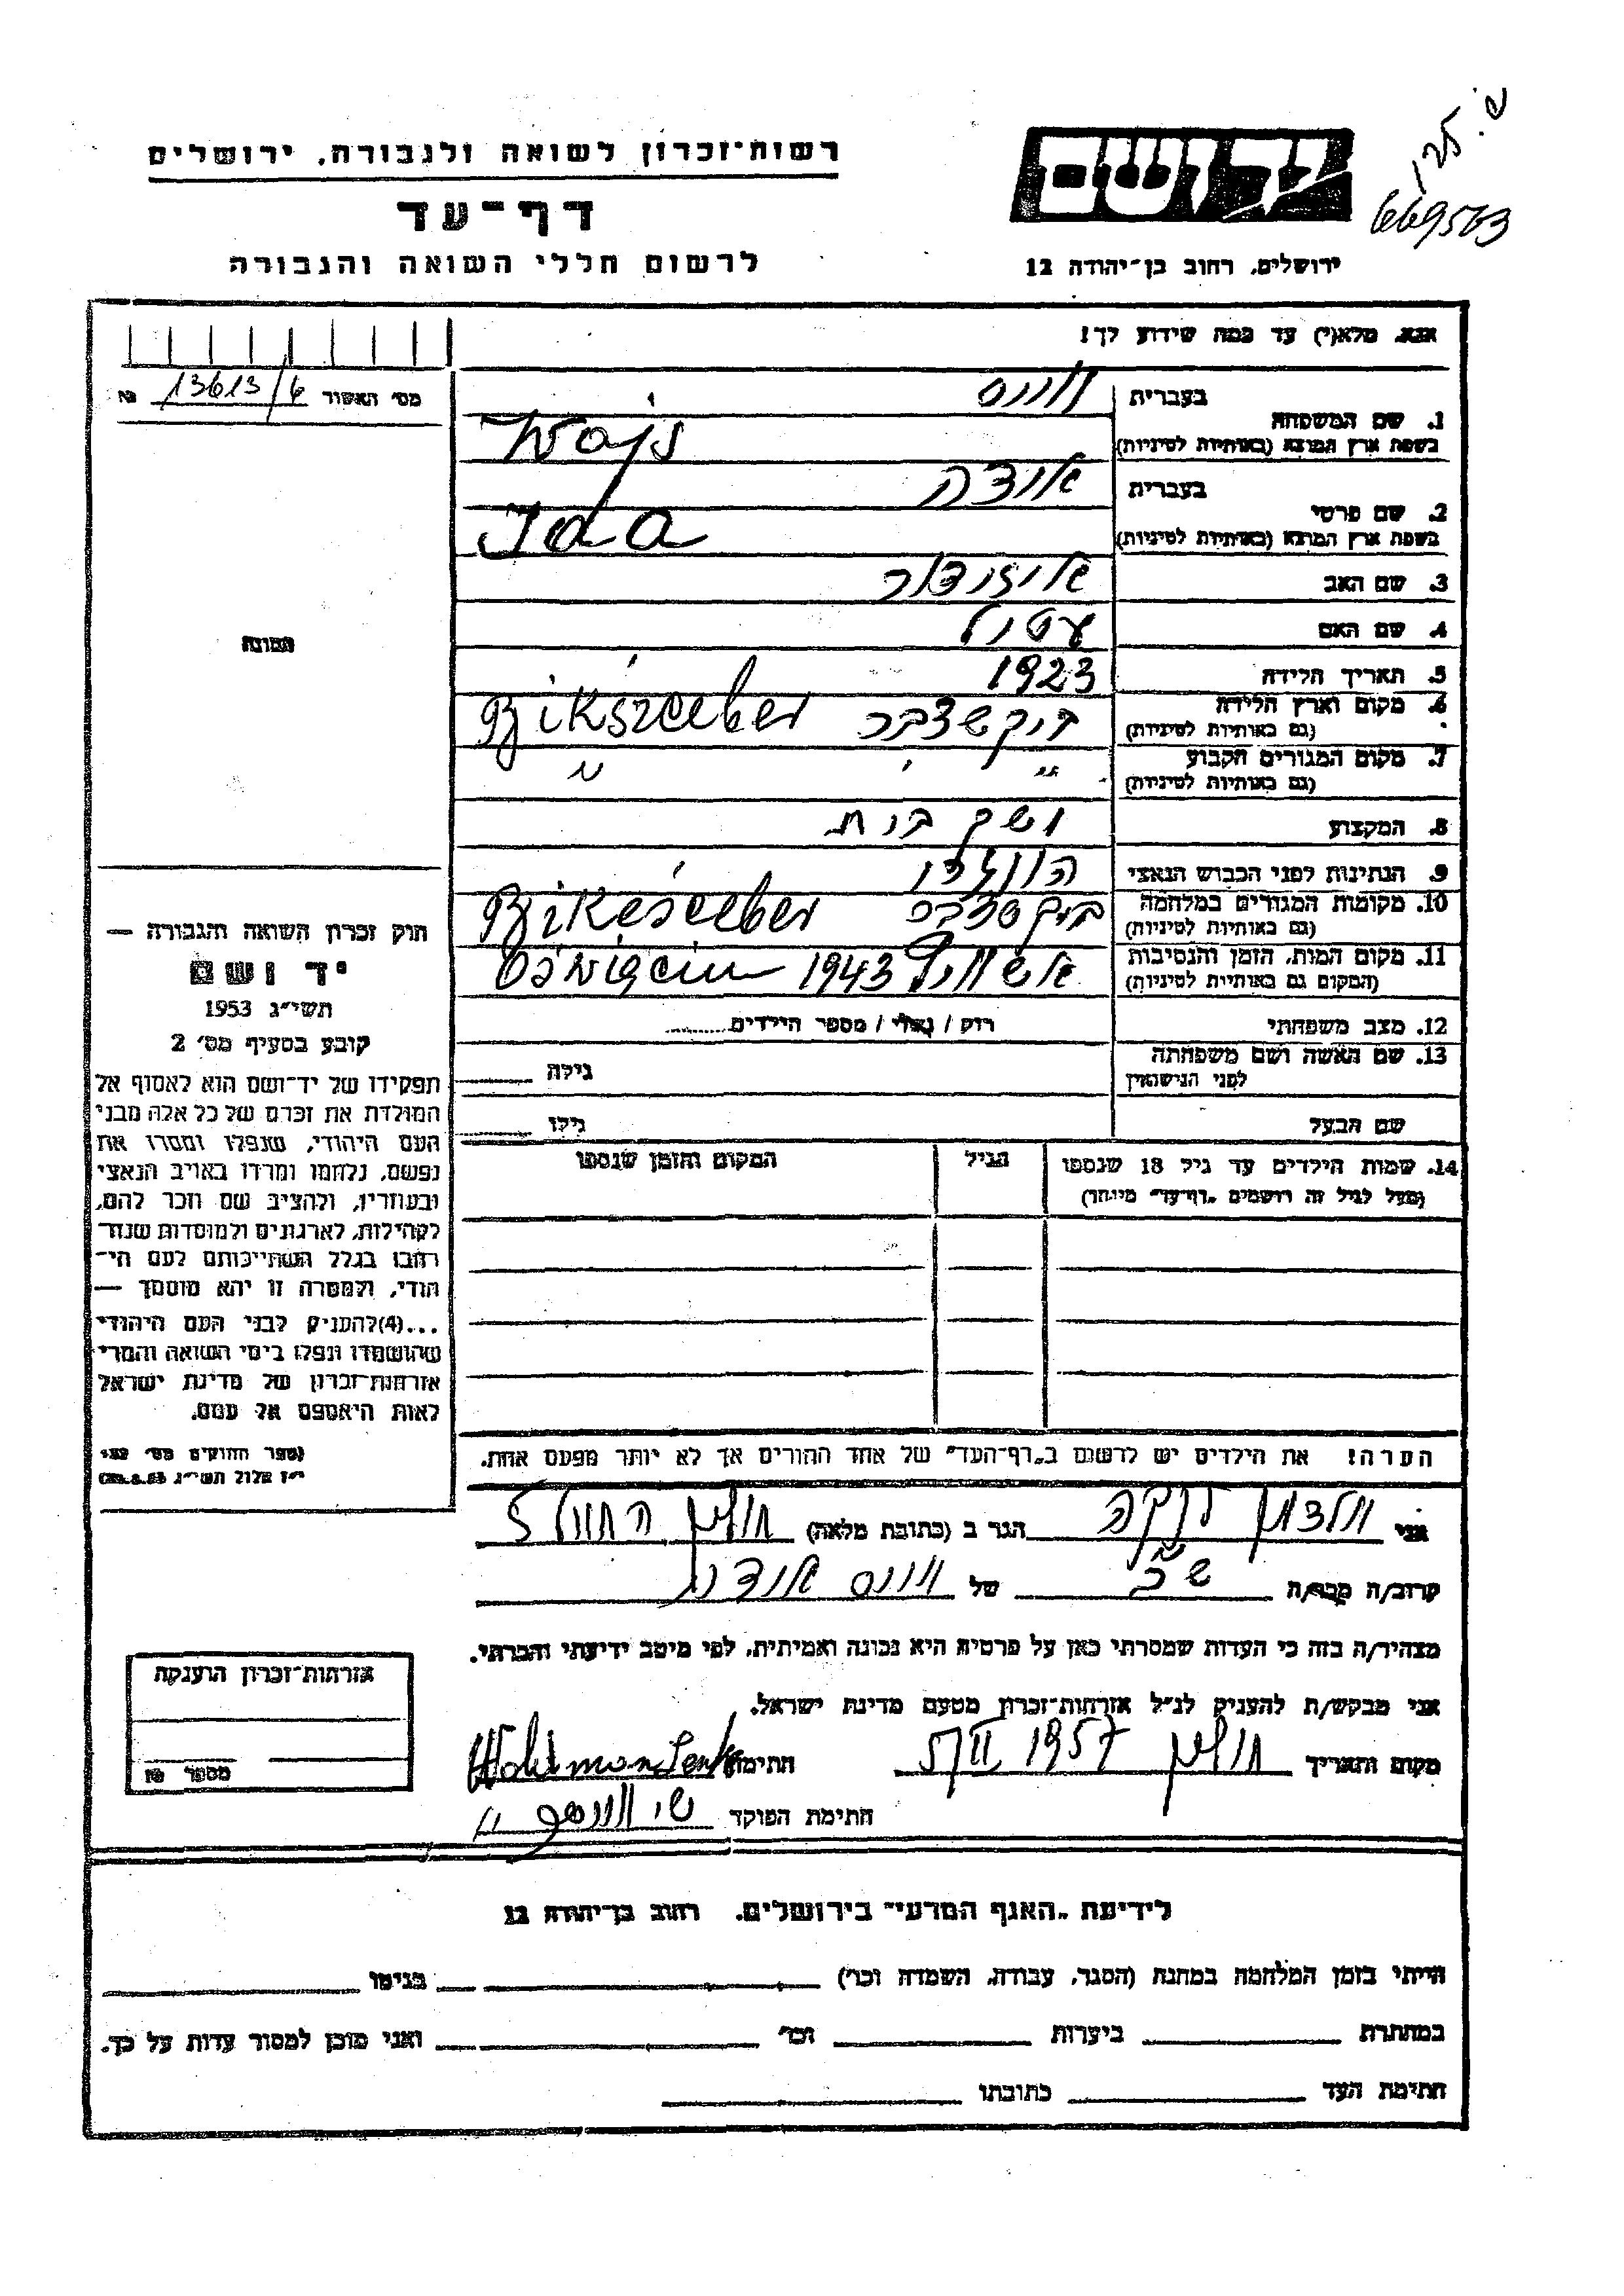 ש. לבן
669503
רשות־זכרון לשואה ולגבורה, ירושלים
דף־עד
לרשום חללי השואה והגבורה
יד ושם
ירושלים, רחוב בן־יהודה 12
אנא, מלא(י) עד כמה שידוע לך!
מס׳ האשור 13613/6 №
1. שם המשפחה
בעברית וויס
בשפת ארץ המוצא (באותיות לטיניות) Wajs
2. שם פרטי
בעברית אידה
בשפת ארץ המוצא (באותיות לטיניות) Ida
3. שם האב איזידור
4. שם האם
5. תאריך הלידה 1923
6. מקום וארץ הלידה
(גם באותיות לטיניות)
7. מקום המגורים הקבוע
(גם באותיות לטיניות) " "
8. המקצוע משק בית
9. הנתינות לפני הכבוש הנאצי הונגרי
10. מקומות המגורים במלחמה
(גם באותיות לטיניות)
11. מקום המות, הזמן והנסיבות
(המקום גם באותיות לטיניות) אושוויץ 1943 Oświęcim
12. מצב משפחתי רווק / נשוי / מספר הילדים
13. שם האשה ושם משפחתה
לפני הנישואין גילה
שם הבעל גילו
14. שמות הילדים עד גיל 18 שנספו
(מעל לגיל זה רושמים „דף־עד״ מיוחד)
הגיל
המקום והזמן שנספו
הערה! את הילדים יש לרשום ב„דף־העד״ של אחד ההורים אך לא יותר מפעם אחת.
התמונה
חוק זכרון השואה והגבורה —
יד ושם
תשי״ג 1953
קובע בסעיף מס׳ 2
תפקידו של יד־ושם הוא לאסוף אל
המולדת את זכרם של כל אלה מבני
העם היהודי, שנפלו ומסרו את
נפשם, נלחמו ומרדו באויב הנאצי
ובעוזריו, ולהציב שם וזכר להם,
לקהילות, לארגונים ולמוסדות שנח־
רבו בגלל השתייכותם לעם הי־
הודי, ולמטרה זו יהא מוסמך —
...(4) להעניק לבני העם היהודי
שהושמדו ונפלו בימי השואה והמרי
אזרחות־זכרון של מדינת ישראל
לאות היאספם אל עמם.
(ספר החוקים מס׳ 132
י״ז אלול תשי״ג 28.8.53)
אני ולדמן לנקה הגר ב (כתובת מלאה) חולון
קרוב/ה מכר/ה של וויס אידה
מצהיר/ה בזה כי העדות שמסרתי כאן על פרטיה היא נכונה ואמיתית, לפי מיטב ידיעתי והכרתי.
אני מבקש/ת להעניק לנ״ל אזרחות־זכרון מטעם מדינת ישראל.
מקום ותאריך חולון 1957 חתימה Waldman Lenke
חתימת הפוקד
אזרחות־זכרון הוענקה
מספר №
לידיעת „האגף המדעי״ בירושלים, רחוב בן־יהודה 12
הייתי בזמן המלחמה במחנה (הסגר, עבודה, השמדה וכו׳) בגיטו
במחתרת ביערות וכו׳ ואני מוכן למסור עדות על כך.
חתימת העד כתובתו